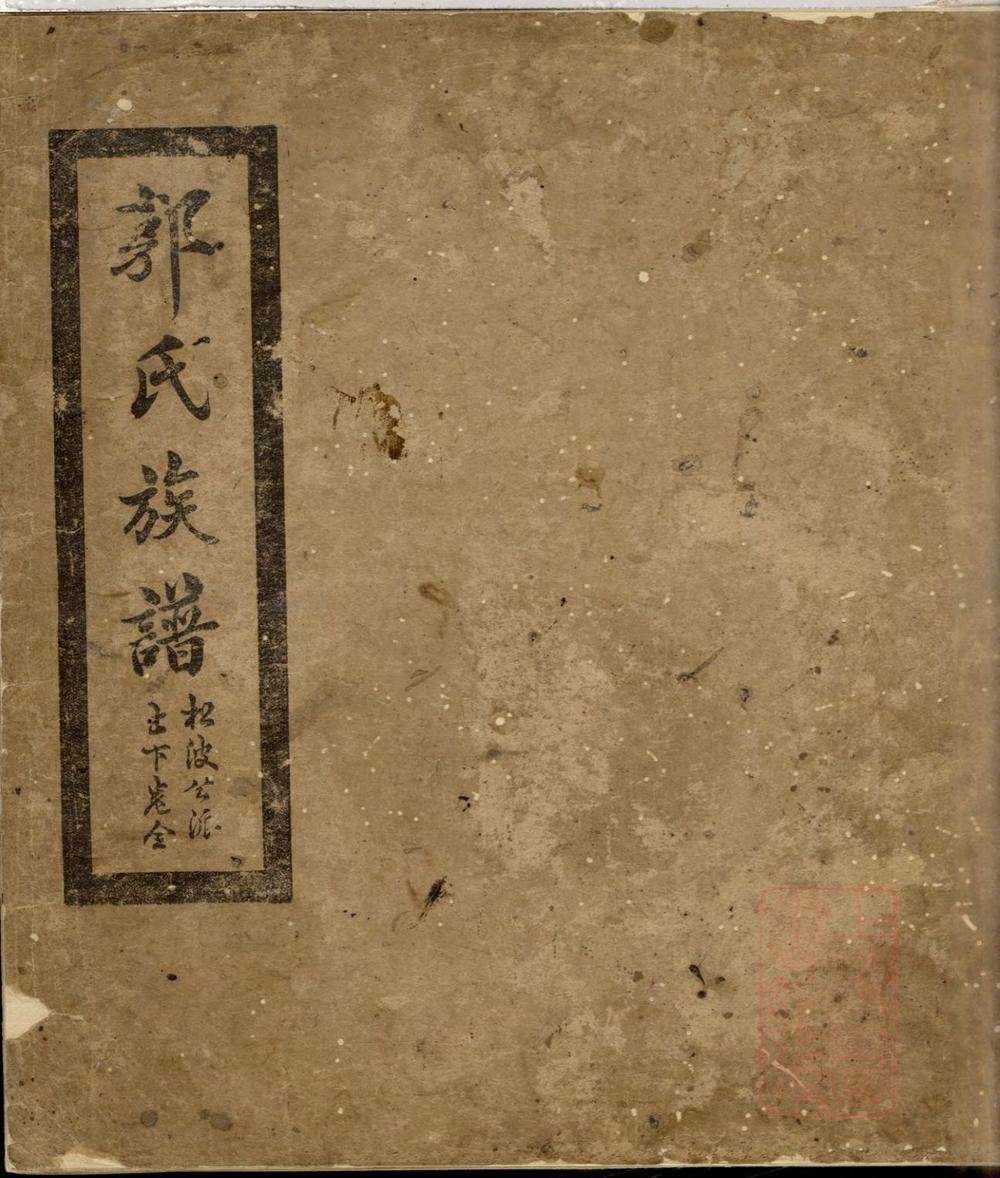 郭氏族譜
松波公派
上下卷全